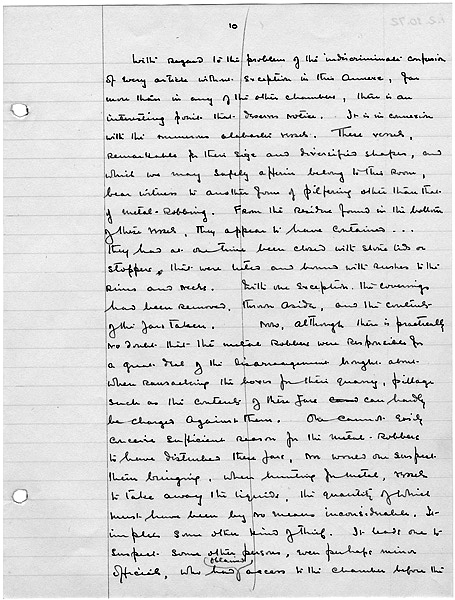 10
With regard to the problem of the indiscriminate confusion
of every article without exception in this Annexe, far
more than in any of the other chambers, there is an
interesting point that deserves notice... It is in connexion
with the numerous alabaster vessels. These vessels,
remarkable for their size and diversified shapes, and
which we may safely affirm belong to this room,
bear witness to another form of pilfering other than that
of metal-robbing. From the residue found in the bottom
of these vessels, they appear to have contained ...
They had at one time been closed with stone lids or
stoppers, that were luted and bound with rushes to the
rims and necks. With one exception the coverings
had been removed, thrown aside, and the contents
of the jars taken. Now, although there is practically
no doubt that the metal robbers were responsible for
a great deal of the disarrangement brought about
when ransacking the boxes for their quarry, pillage
such as the contents of these jars can hardly
be charged against them. One cannot easily
conceive sufficient reason for the metal-robbers
to have disturbed these jars, nor would one suspect
them bringing, when hunting for metal, vessels
to take away the liquids, the quantity of which
must have been by no means inconsiderable. It
implies some other kind of thief. It leads one to
suspect some other persons, even perhaps minor
obtained
officials, who had access to the chamber before the